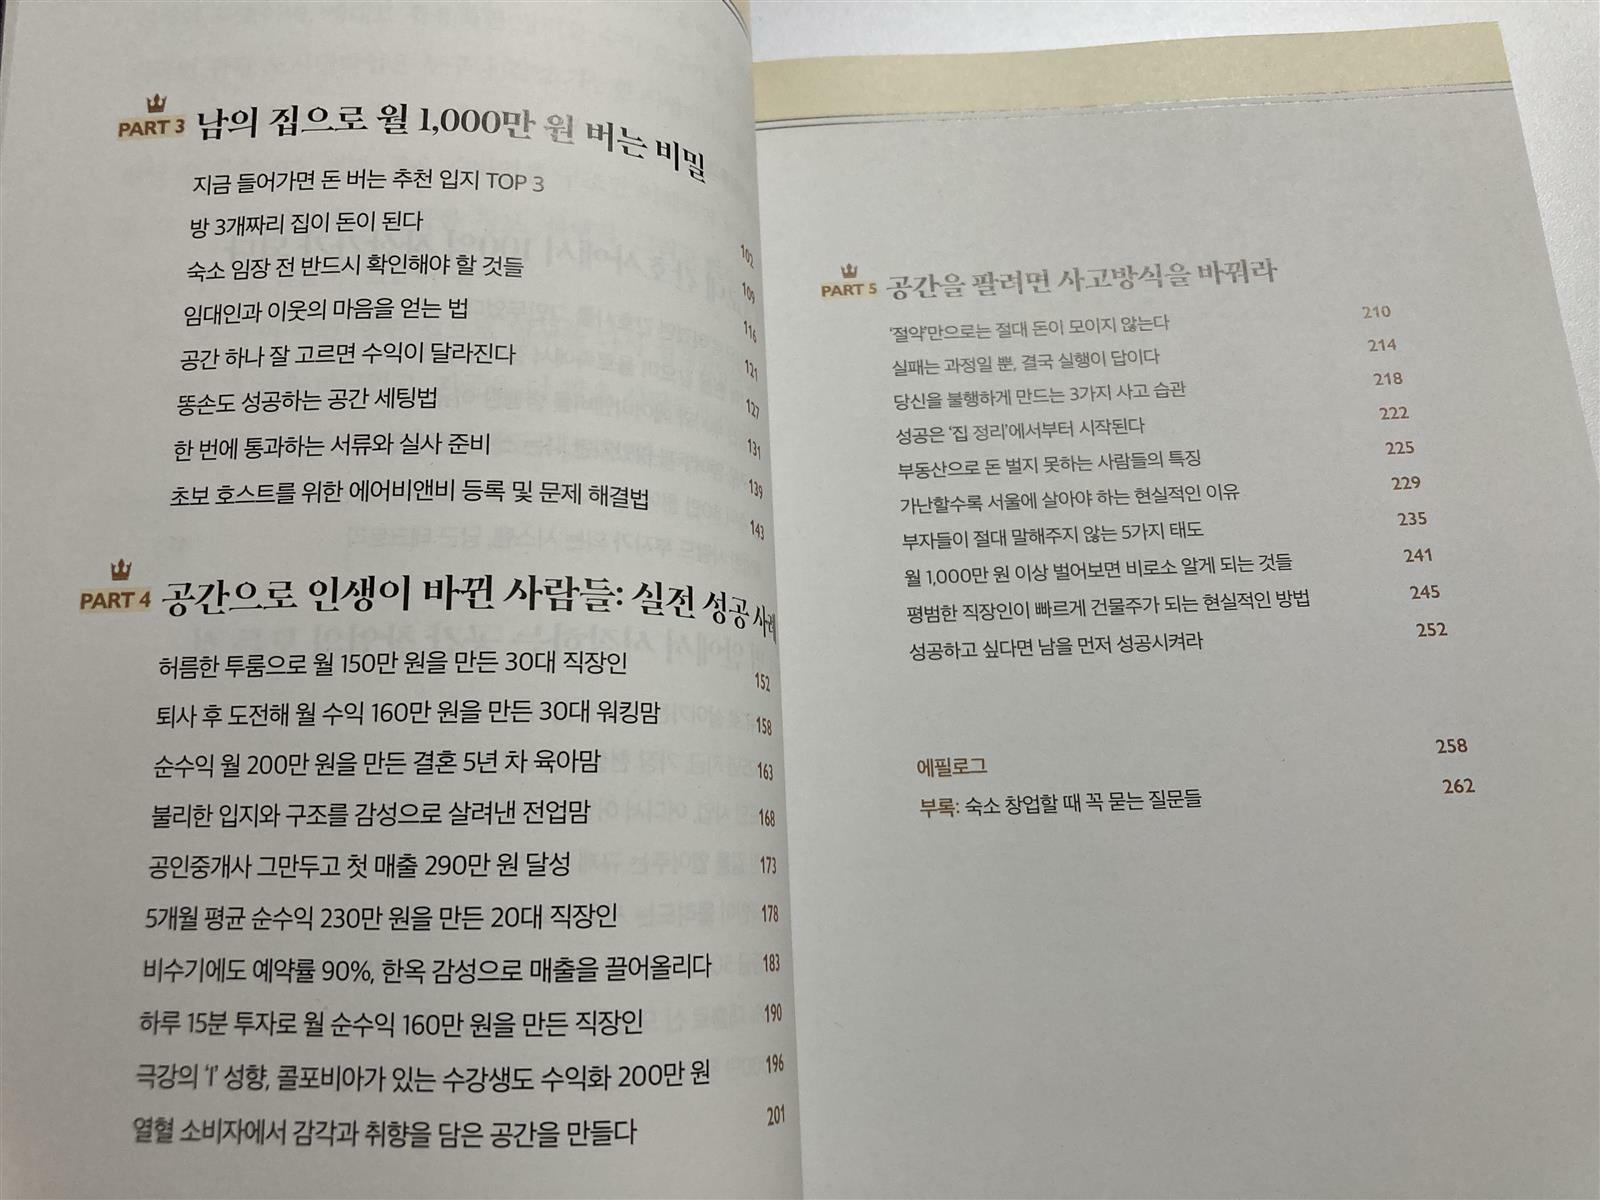 PART 3 남의 집으로 월 1,000만 원 버는 비밀
지금 들어가면 돈 버는 추천 입지 TOP 3 102
방 3개짜리 집이 돈이 된다 109
숙소 임장 전 반드시 확인해야 할 것들 116
임대인과 이웃의 마음을 얻는 법 121
공간 하나 잘 고르면 수익이 달라진다 127
똥손도 성공하는 공간 세팅법 131
한 번에 통과하는 서류와 실사 준비 139
초보 호스트를 위한 에어비앤비 등록 및 문제 해결법 143
PART 4 공간으로 인생이 바뀐 사람들: 실전 성공 사례
허름한 투룸으로 월 150만 원을 만든 30대 직장인 152
퇴사 후 도전해 월 수익 160만 원을 만든 30대 워킹맘 158
순수익 월 200만 원을 만든 결혼 5년 차 육아맘 163
불리한 입지와 구조를 감성으로 살려낸 전업맘 168
공인중개사 그만두고 첫 매출 290만 원 달성 173
5개월 평균 순수익 230만 원을 만든 20대 직장인 178
비수기에도 예약률 90%, 한옥 감성으로 매출을 끌어올리다 183
하루 15분 투자로 월 순수익 160만 원을 만든 직장인 190
극강의 'I' 성향, 콜포비아가 있는 수강생도 수익화 200만 원 196
열혈 소비자에서 감각과 취향을 담은 공간을 만들다 201
PART 5 공간을 팔려면 사고방식을 바꿔라
'절약'만으로는 절대 돈이 모이지 않는다 210
실패는 과정일 뿐, 결국 실행이 답이다 214
당신을 불행하게 만드는 3가지 사고 습관 218
성공은 '집 정리'에서부터 시작된다 222
부동산으로 돈 벌지 못하는 사람들의 특징 225
가난할수록 서울에 살아야 하는 현실적인 이유 229
부자들이 절대 말해주지 않는 5가지 태도 235
월 1,000만 원 이상 벌어보면 비로소 알게 되는 것들 241
평범한 직장인이 빠르게 건물주가 되는 현실적인 방법 245
성공하고 싶다면 남을 먼저 성공시켜라 252
에필로그 258
부록: 숙소 창업할 때 꼭 묻는 질문들 262